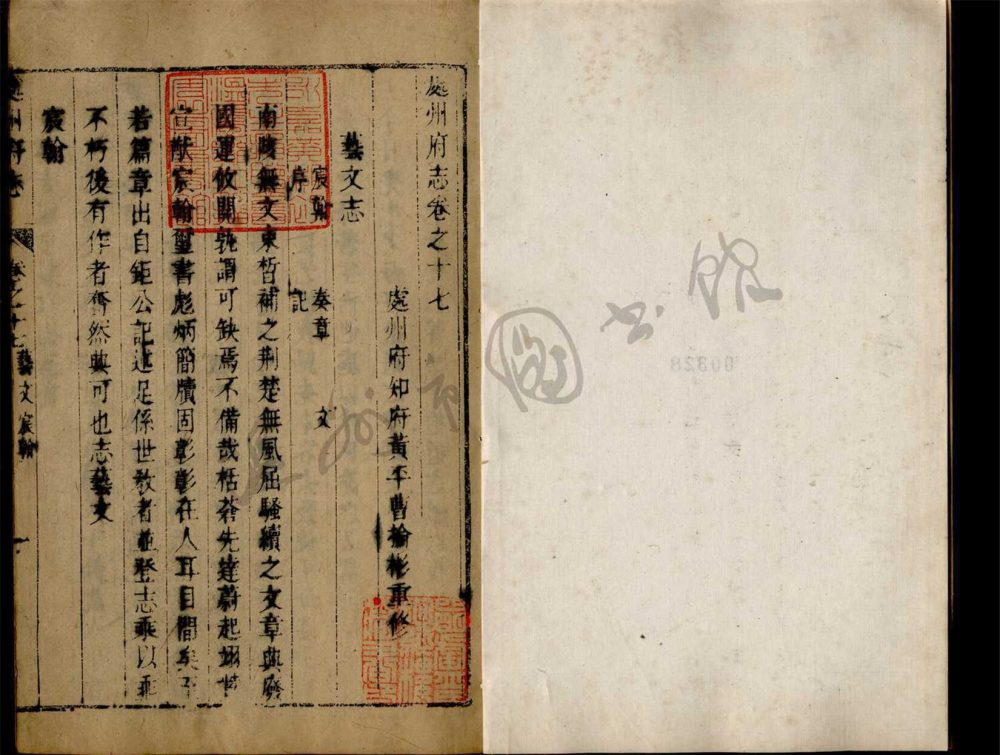 處州府志卷之十七
處州府知府黃平曹掄彬重修
藝文志
宸翰 奏章 文
序 記
南陔無文束皙補之荊楚無風屈騷續之文章與廢
國運攸關孰謂可缺焉不備哉栝蒼先達蔚起
宣猷宸翰璽書彪炳簡牘固彰彰在人耳目間矣
若篇章出自鉅公記述足係世教者並登志乘以垂
不朽後有作者奮然興可也志藝文
宸翰
處州府志 卷之十七 藝文 宸翰 一
溫州市圖書館
00328